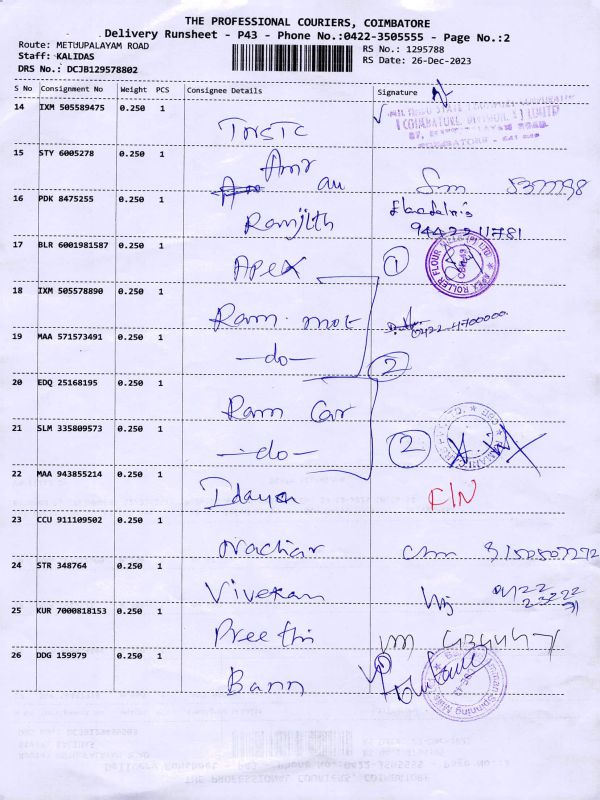 THE PROFESSIONAL COURIERS, COIMBATORE
Delivery Runsheet - P43 - Phone No.:0422-3505555 - Page No.:2
Route: METUUPALAYAM ROAD
RS No.: 1295788
Staff: KALIDAS
RS Date: 26-Dec-2023
DRS No.: DCJB129578802
S No Consignment No Weight PCS Consignee Details Signature
14 IXM 505589475 0.250 1
TNSTC
15 STY 6005278 0.250 1
Amr
16 PDK 8475255 0.250 1
Ranjith
9442211781
17 BLR 6001981587 0.250 1
APEX 1
APEX ROLLER FLOUR MILLS (P) LTD.
18 IXM 505578890 0.250 1
Ram. mot
19 MAA 571573491 0.250 1
-do- 2
20 EDQ 25168195 0.250 1
Ram Car
21 SLM 335809573 0.250 1
-do- 2
22 MAA 943855214 0.250 1
Idaya
23 CCU 911109502 0.250 1
Nachiar
24 STR 348764 0.250 1
Vivekan
25 KUR 7000818153 0.250 1
Preethi
26 DDG 159979 0.250 1
Bann